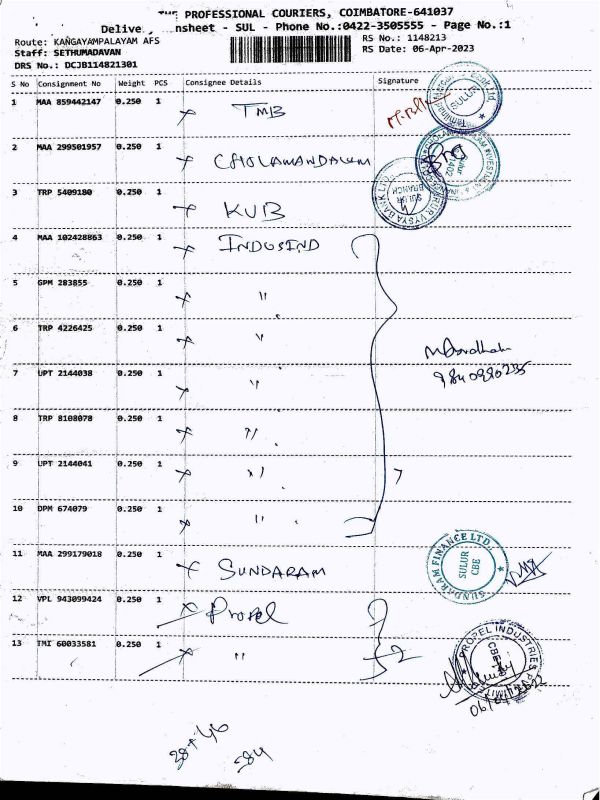 THE PROFESSIONAL COURIERS, COIMBATORE-641037
nsheet - SUL - Phone No.:0422-3505555 - Page No.:1
Route: KANGAYAMPALAYAM AFS
RS No.: 1148213
Staff: SETHUMADAVAN
RS Date: 06-Apr-2023
DRS No.: DCJB114821301
S No Consignment No Weight PCS Consignee Details Signature
1 MAA 859442147 0.250 1 TMB
SULUR
2 MAA 299501957 0.250 1 CHOLAMANDALAM
3 TRP 5409180 0.250 1 KVB
KARUR VYSYA BANK LTD
SULUR BRANCH
4 MAA 102428863 0.250 1 INDUSIND
5 GPM 283855 0.250 1 "
6 TRP 4226425 0.250 1 "
7 UPT 2144038 0.250 1 "
8 TRP 8108078 0.250 1 "
9 UPT 2144041 0.250 1 " 7
10 DPM 674079 0.250 1 "
11 MAA 299179018 0.250 1 SUNDARAM
SUNDARAM FINANCE LTD.,
SULUR
CBE
12 VPL 943099424 0.250 1 Propel
13 TMI 60033581 0.250 1 " 2
PROPEL INDUSTRIES
CBE
28+46
284